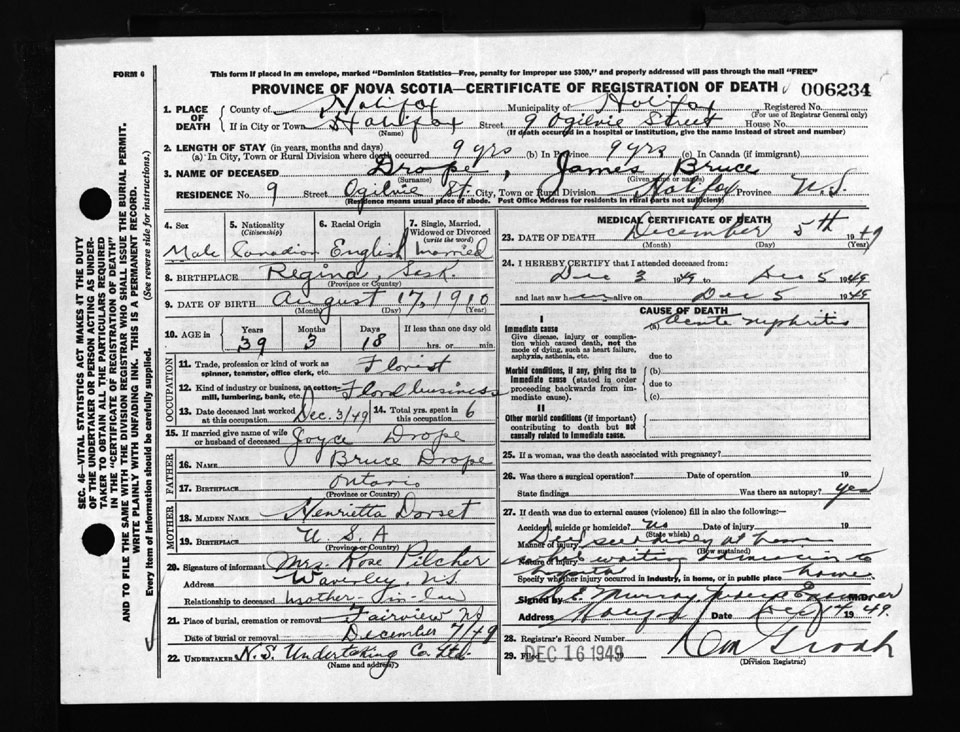 FORM 6
This form if placed in an envelope, marked "Dominion Statistics—Free, penalty for improper use $300," and properly addressed will pass through the mail "FREE"
PROVINCE OF NOVA SCOTIA—CERTIFICATE OF REGISTRATION OF DEATH 006234
1. PLACE OF DEATH County of Halifax Municipality of Halifax Registered No.
(For use of Registrar General only)
If in City or Town Halifax Street 9 Ogilvie Street House No.
(Name) (If death occurred in a hospital or institution, give the name instead of street and number)
2. LENGTH OF STAY (in years, months and days)
(a) In City, Town or Rural Division where death occurred 9 yrs (b) In Province 9 yrs (c) In Canada (if immigrant)
3. NAME OF DECEASED Drope, James Bruce
(Surname) (Given name or names)
RESIDENCE No. 9 Street Ogilvie St. City, Town or Rural Division Halifax Province N.S.
(Residence means usual place of abode. Post Office Address for residents in rural parts not sufficient)
4. Sex 5. Nationality (Citizenship) 6. Racial Origin 7. Single, Married, Widowed or Divorced (write the word)
Male Canadian English married
8. BIRTHPLACE Regina, Sask.
(Province or Country)
9. DATE OF BIRTH August 17, 1910
(Month) (Day) (Year)
10. AGE in Years Months Days If less than one day old
39 3 18 hrs. or min.
OCCUPATION
11. Trade, profession or kind of work as spinner, teamster, office clerk, etc. Florist
12. Kind of industry or business, as cotton-mill, lumbering, bank, etc. business
13. Date deceased last worked at this occupation Dec. 3/49 14. Total yrs. spent in this occupation 6
15. If married give name of wife or husband of deceased Joyce Drope
FATHER
16. NAME Bruce Drope
17. BIRTHPLACE Ontario
(Province or Country)
MOTHER
18. MAIDEN NAME Henrietta Dorset
19. BIRTHPLACE U.S.A
(Province or Country)
20. Signature of informant Mrs. Rose Pilcher
Address Waverley, N.S.
Relationship to deceased Mother-in-law
21. Place of burial, cremation or removal Fairview NS
Date of burial or removal December 7/49
22. UNDERTAKER N.S. Undertaking Co. Ltd.
(Name and address)
MEDICAL CERTIFICATE OF DEATH
23. DATE OF DEATH December 5th 1949
(Month) (Day) (Year)
24. I HEREBY CERTIFY that I attended deceased from:
Dec 3 1949 to Dec 5 1949
and last saw him alive on Dec 5 1949
CAUSE OF DEATH
I
Immediate cause (a) Acute nephritis
Give disease, injury or complication which caused death, not the mode of dying, such as heart failure, asphyxia, asthenia, etc. due to
Morbid conditions, if any, giving rise to immediate cause (stated in order proceeding backwards from immediate cause). (b)
due to
(c)
II
Other morbid conditions (if important) contributing to death but not causally related to immediate cause.
25. If a woman, was the death associated with pregnancy?
26. Was there a surgical operation? Date of operation 19
State findings Was there an autopsy? yes
27. If death was due to external causes (violence) fill in also the following:—
Accident, suicide or homicide? No Date of injury 19
(State which)
Manner of injury suddenly at home
(How sustained)
Nature of injury while waiting admission to
hospital
Specify whether injury occurred in industry, in home, or in public place home
Signed by E. Murray Examiner M.D.
Address Date Dec 14 1949.
28. Registrar's Record Number
29. Filed DEC 16 1949
(Division Registrar)
SEC. 46—VITAL STATISTICS ACT MAKES IT THE DUTY
OF THE UNDERTAKER OR PERSON ACTING AS UNDER-
TAKER TO OBTAIN ALL THE PARTICULARS REQUIRED
IN THE "CERTIFICATE OF REGISTRATION OF DEATH"
AND TO FILE THE SAME WITH THE DIVISION REGISTRAR WHO SHALL ISSUE THE BURIAL PERMIT.
WRITE PLAINLY WITH UNFADING INK. THIS IS A PERMANENT RECORD.
Every item of information should be carefully supplied. (See reverse side for instructions.)